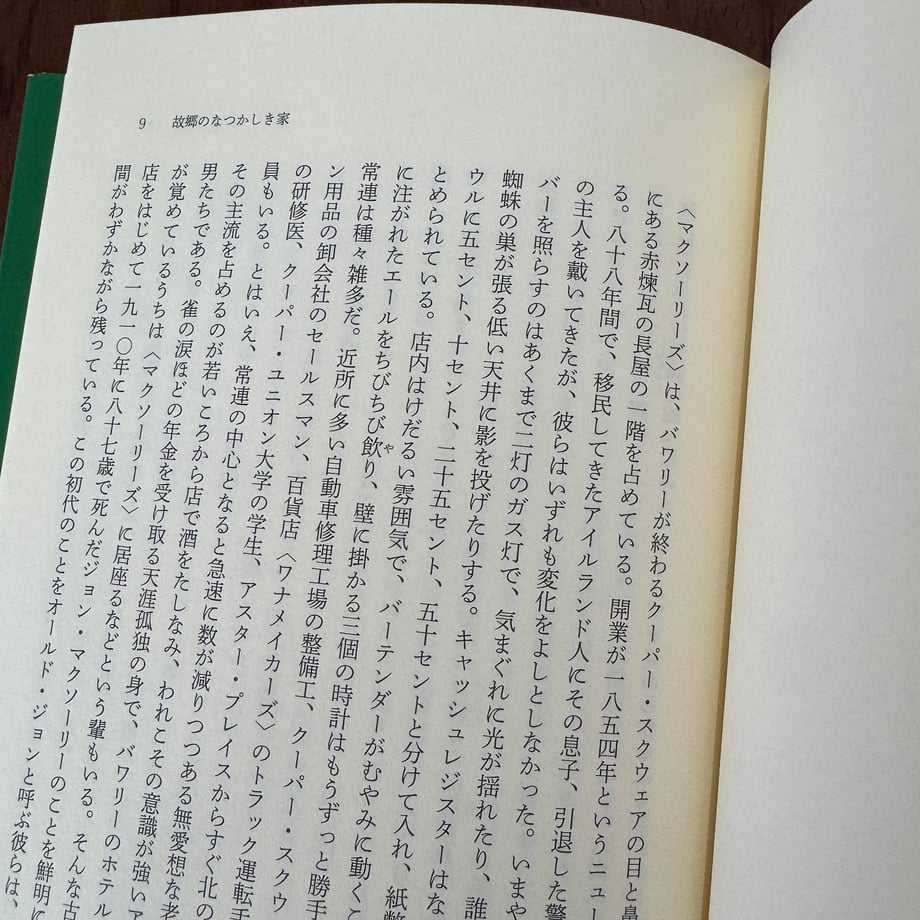 9 故郷のなつかしき家
〈マクソーリーズ〉は、バワリーが終わるクーパー・スクウェアの目と鼻
にある赤煉瓦の長屋の一階を占めている。開業が一八五四年というニュー
る。八十八年間で、移民してきたアイルランド人にその息子、引退した警
の主人を戴いてきたが、彼らはいずれも変化をよしとしなかった。いまや
バーを照らすのはあくまで二灯のガス灯で、気まぐれに光が揺れたり、誰
蜘蛛の巣が張る低い天井に影を投げたりする。キャッシュレジスターはな
ウルに五セント、十セント、二十五セント、五十セントと分けて入れ、紙幣
とめられている。店内はけだるい雰囲気で、バーテンダーがむやみに動くこ
に注がれたエールをちびちび飲り、壁に掛かる三個の時計はもうずっと勝手
常連は種々雑多だ。近所に多い自動車修理工場の整備工、クーパー・スクウ
ン用品の卸会社のセールスマン、百貨店〈ワナメイカーズ〉のトラック運転手
の研修医、クーパー・ユニオン大学の学生、アスター・プレイスからすぐ北の
員もいる。とはいえ、常連の中心となると急速に数が減りつつある無愛想な老
その主流を占めるのが若いころから店で酒をたしなみ、われこその意識が強いア
男たちである。雀の涙ほどの年金を受け取る天涯孤独の身で、バワリーのホテル
が覚めているうちは〈マクソーリーズ〉に居座るなどという輩もいる。そんな古
店をはじめて一九一〇年に八十七歳で死んだジョン・マクソーリーのことを鮮明に
間がわずかながら残っている。この初代のことをオールド・ジョンと呼ぶ彼らは、